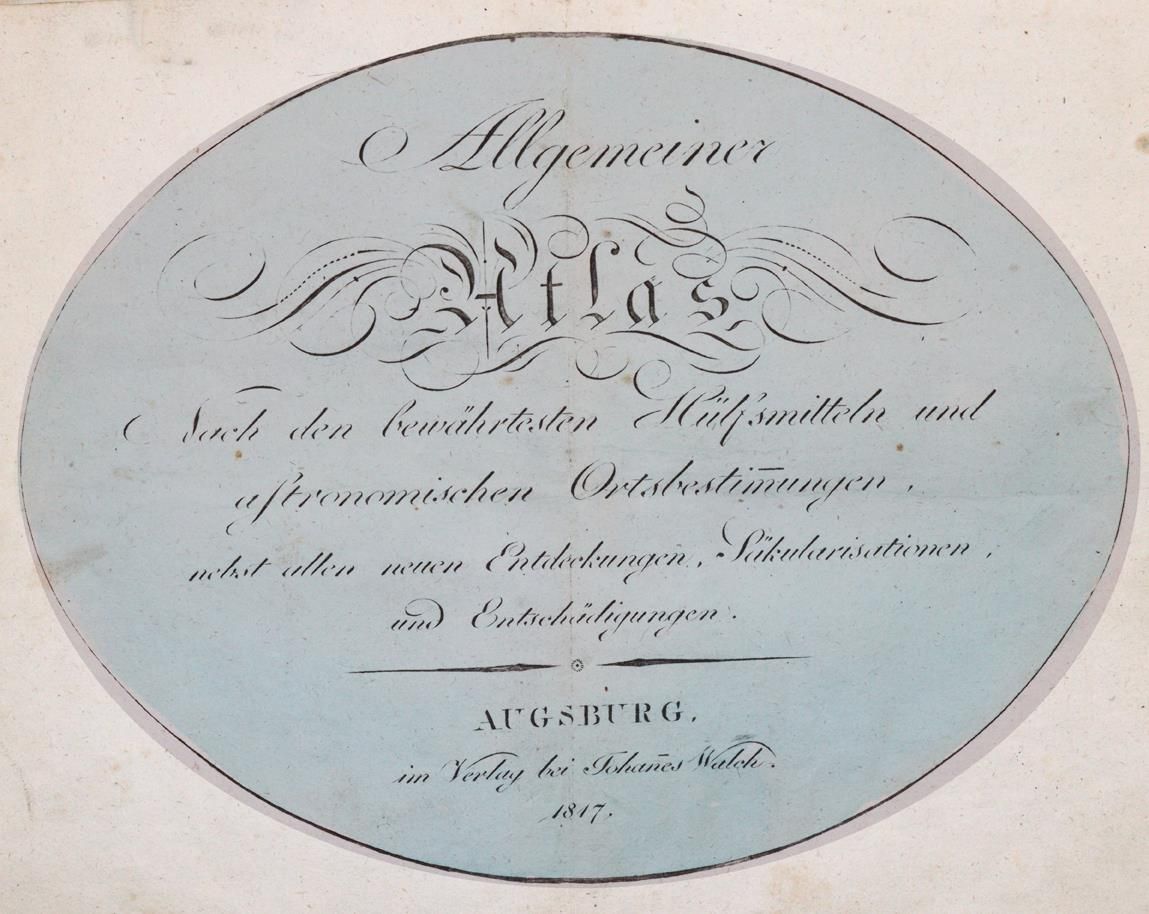 Allgemeiner
Atlas
Nach den bewährtesten Hülfsmitteln und
aſtronomischen Ortsbestim̅ungen,
nebst allen neuen Entdeckungen, Säkularisationen,
und Entschädigungen.
AUGSBURG,
im Verlag bei Johan̅es Walch.
1817.